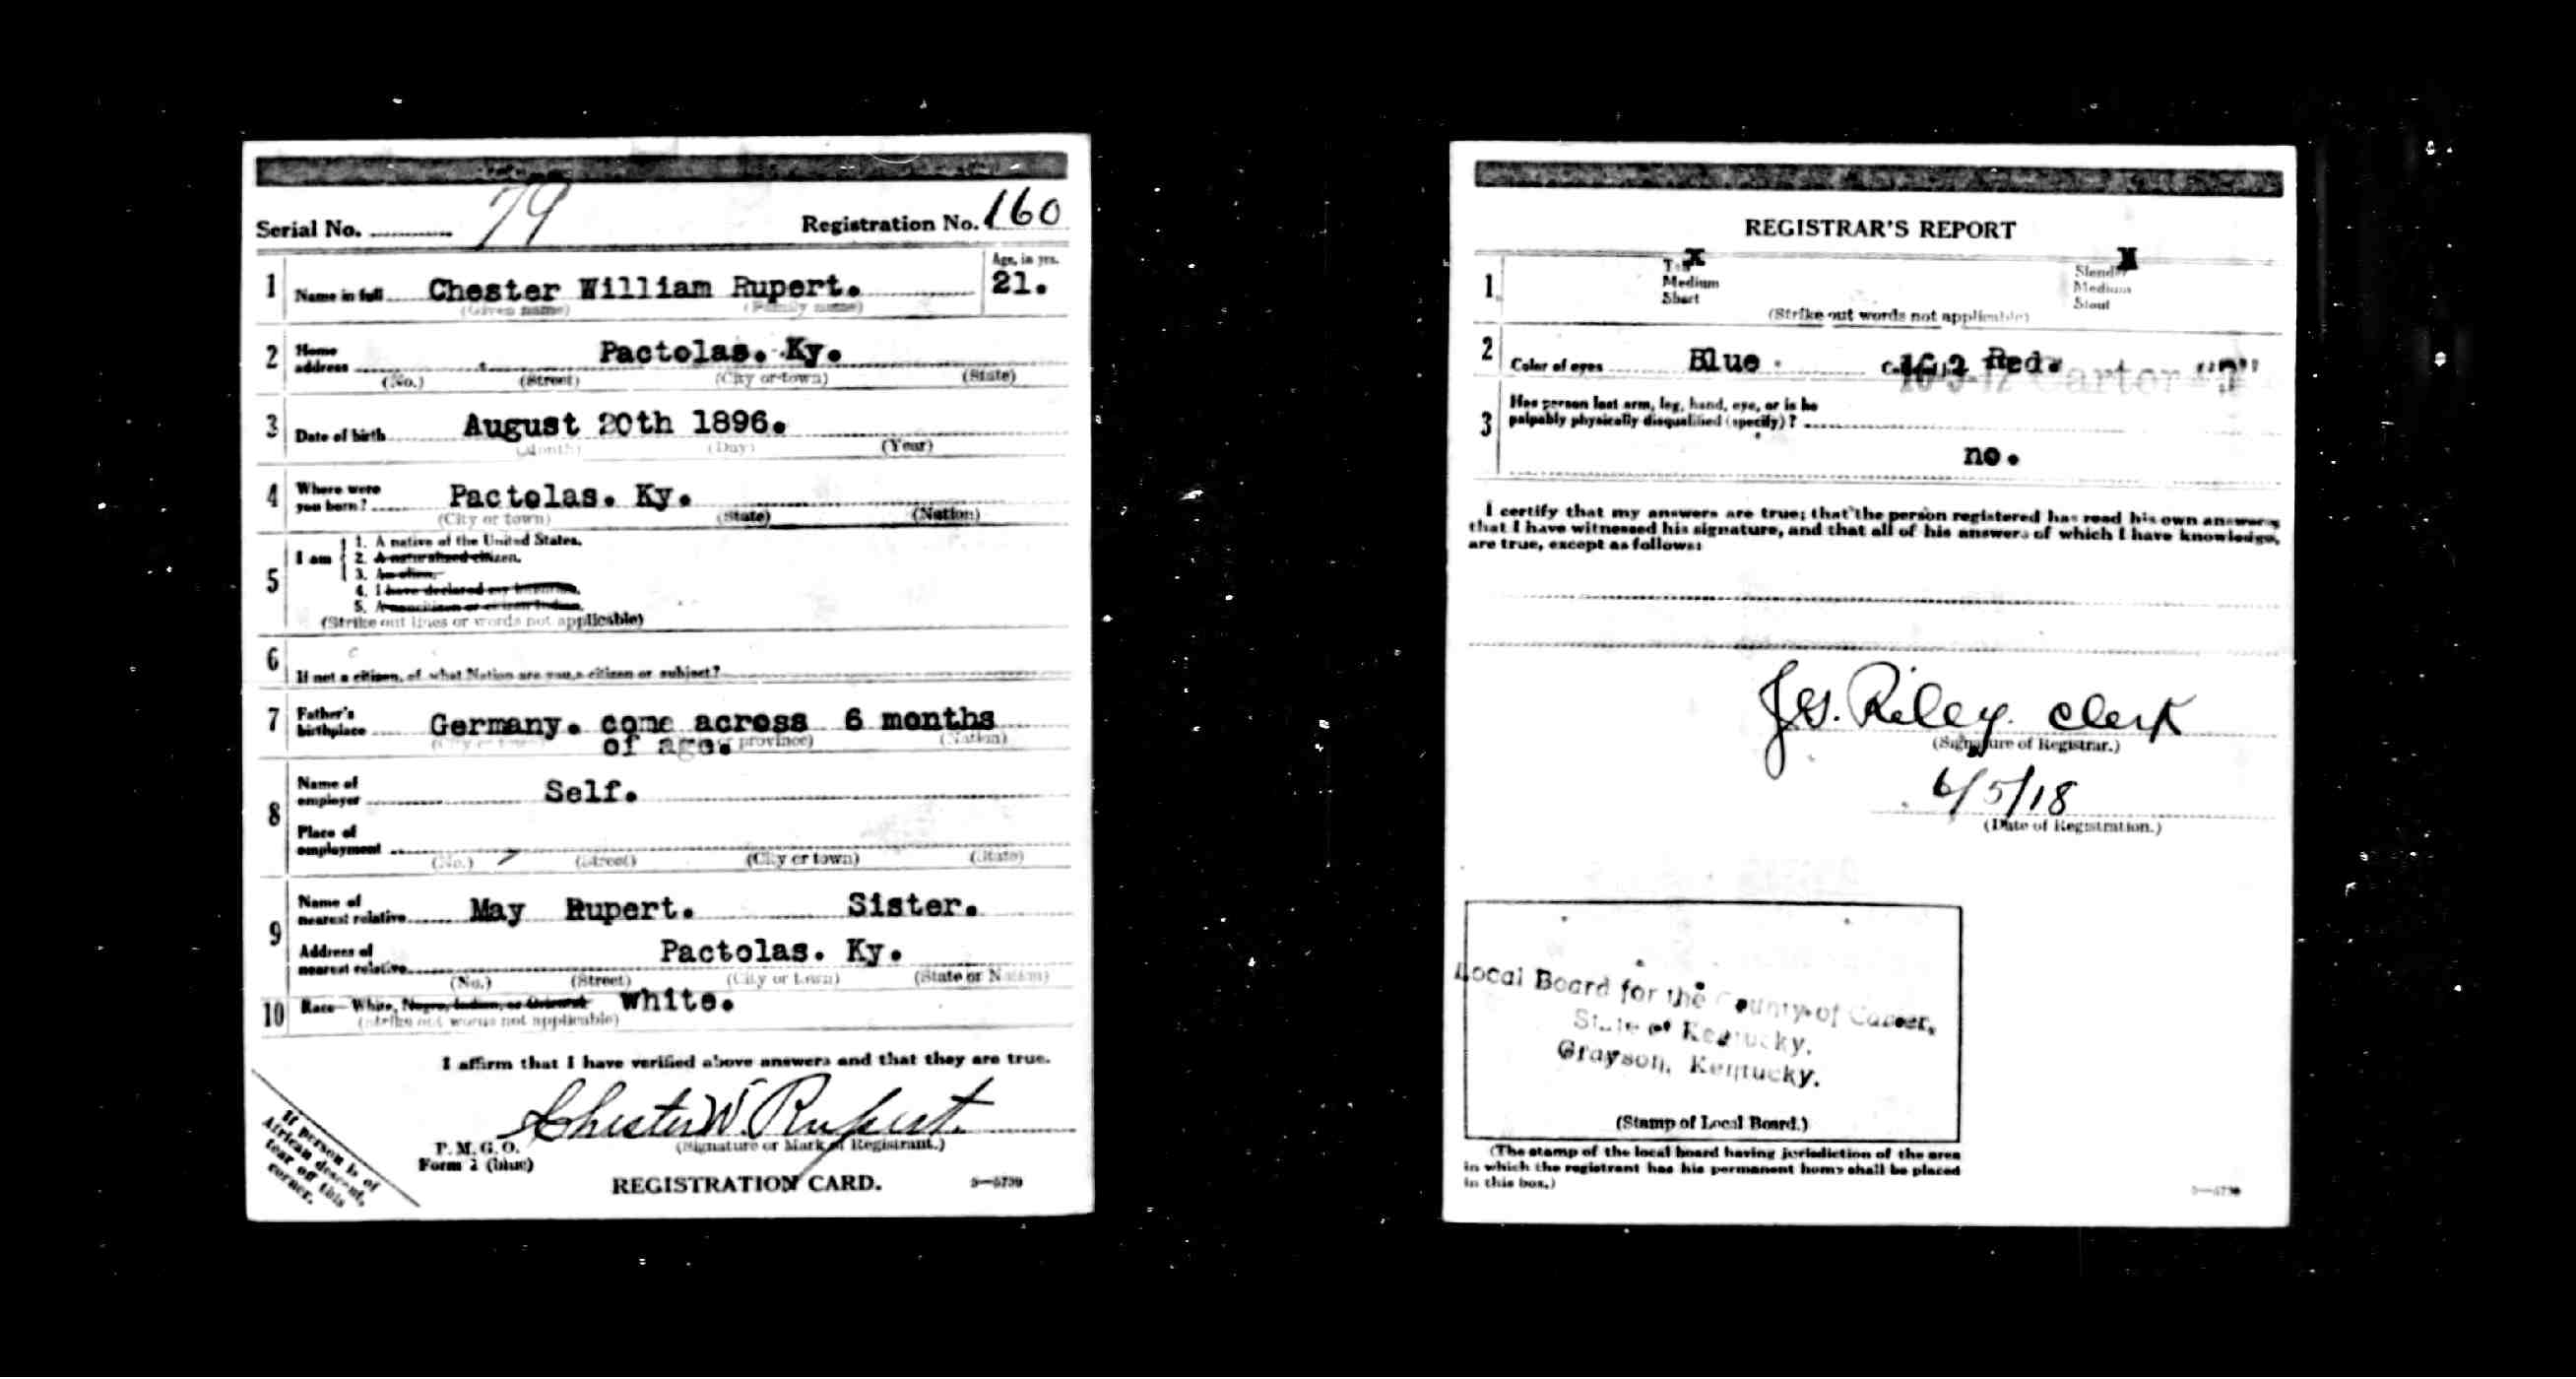 Serial No. 79 Registration No. 160
1 Name in full Chester William Rupert. Age, in yrs. 21.
(Given name) (Family name)
2 Home address Pactolas. Ky.
(No.) (Street) (City or town) (State)
3 Date of birth August 20th 1896.
(Month) (Day) (Year)
4 Where were you born? Pactolas. Ky.
(City or town) (State) (Nation)
5 I am
1. A native of the United States.
2. A naturalized citizen.
3. An alien.
4. I have declared my intention.
5. A noncitizen or citizen Indian.
(Strike out lines or words not applicable)
6 If not a citizen, of what Nation are you a citizen or subject?
7 Father's birthplace Germany. come across 6 months
of age. province) (Nation)
8 Name of employer Self.
Place of employment
(No.) (Street) (City or town) (State)
9 Name of nearest relative May Rupert. Sister.
Address of nearest relative Pactolas. Ky.
(No.) (Street) (City or town) (State or Nation)
10 Race—White, Negro, Indian, or Oriental white.
(Strike out words not applicable)
I affirm that I have verified above answers and that they are true.
Chester W. Rupert.
(Signature or Mark of Registrant.)
P. M. G. O.
Form 1 (blue)
REGISTRATION CARD.
If person is of
African descent,
tear off this
corner.
REGISTRAR'S REPORT
1 Tall X Slender X
Medium Medium
Short Stout
(Strike out words not applicable)
2 Color of eyes Blue. Red. Carter
3 Has person lost arm, leg, hand, eye, or is he
palpably physically disqualified (specify)?
no.
I certify that my answers are true; that the person registered has read his own answers,
that I have witnessed his signature, and that all of his answers of which I have knowledge,
are true, except as follows:
Riley. Clerk
(Signature of Registrar.)
6/5/18
(Date of Registration.)
Local Board for the County of Carter,
State of Kentucky.
Grayson, Kentucky.
(Stamp of Local Board.)
(The stamp of the local board having jurisdiction of the area
in which the registrant has his permanent home shall be placed
in this box.)